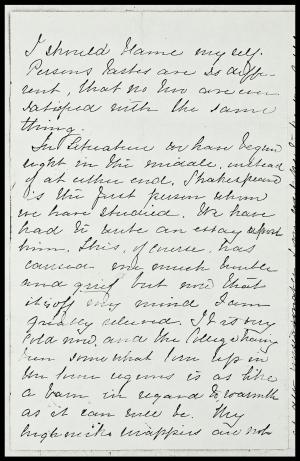 I should blame myself.
Persons tastes are so diffe-
rent, that no two are ever
satisfied with the same
thing.
In Literature we have begun
right in the middle, instead
of at either end. Shakespeare
is the first person whom
we have studied. We have
had to write an essay upon
him. This, of course, has
caused me much trouble
and grief but now that
it is off my mind I am
greatly relieved. It is very
cold now, and the College having
been somewhat torn up in
the lower regions is as like
a barn in regard to warmth
as it can well be. My
wrappers are not